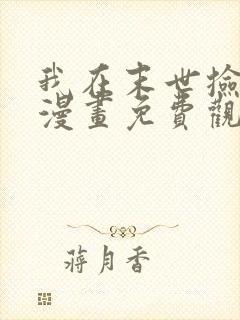 我在末世撿
漫畫免費觀
蔣月香